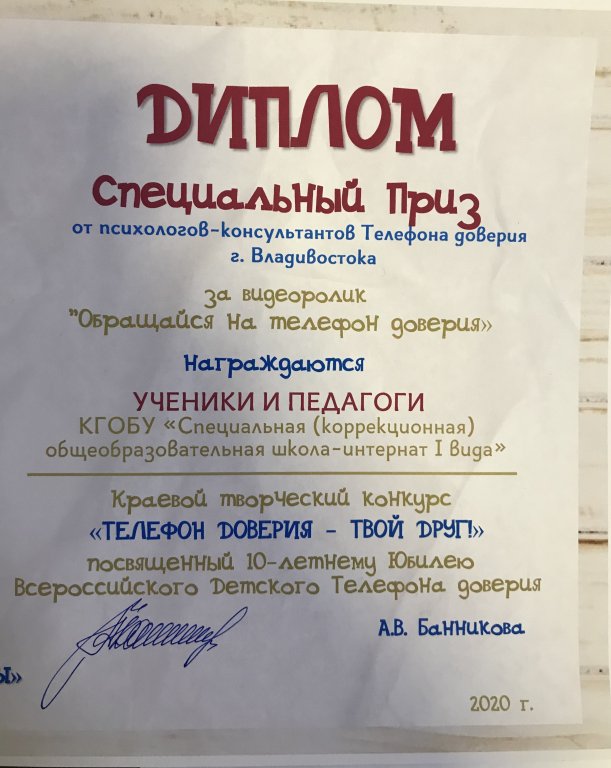 ДИПЛОМ
Специальный Приз
от психологов-консультантов Телефона доверия
г. Владивостока
за видеоролик
"Обращайся на телефон доверия»
Награждаются
УЧЕНИКИ И ПЕДАГОГИ
КГОБУ «Специальная (коррекционная)
общеобразовательная школа-интернат I вида»
Краевой творческий конкурс
«ТЕЛЕФОН ДОВЕРИЯ - ТВОЙ ДРУГ!»
посвященный 10-летнему Юбилею
Всероссийского Детского Телефона доверия
А.В. Банникова
Ы»
2020 г.